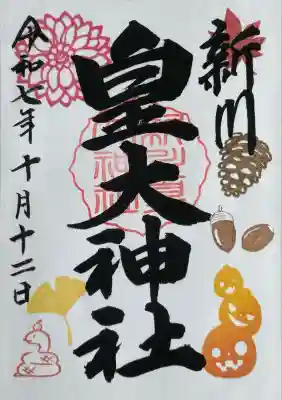 新川
皇大神社
令和七年十月十二日